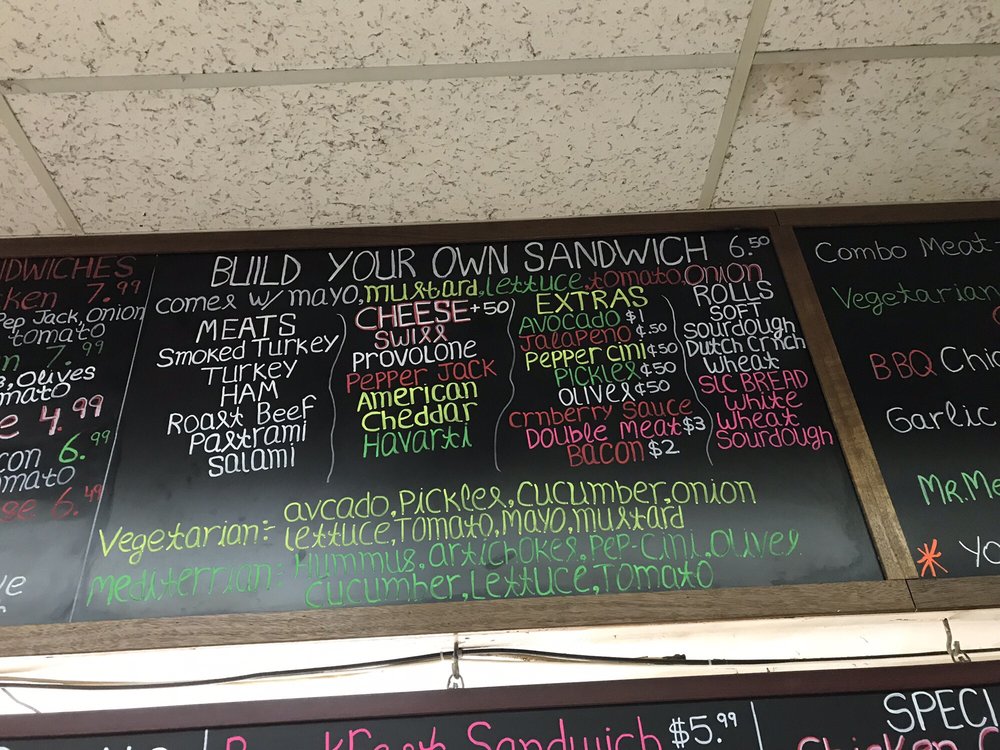 NDWICHES
ken 7.99
Pep Jack, Onion
tomato
n 7.99
s, Olives
mato
e 4.99
con 6.99
omato
ge 6.49
ve
BUILD YOUR OWN SANDWICH 6.50
comes w/ mayo, mustard, lettuce, tomato, onion
MEATS
Smoked Turkey
Turkey
HAM
Roast Beef
Pastrami
Salami
CHEESE +50
SWISS
PROVOLONE
PEPPER JACK
American
Cheddar
Havarti
EXTRAS
AVOCADO $1
JALAPENO ¢.50
PEPPER CINI ¢50
PICKLES ¢50
OLIVES ¢50
Crnberry Sauce
Double Meat $3
Bacon $2
ROLLS
SOFT
Sourdough
Dutch Crnch
Wheat
SLC BREAD
White
Wheat
Sourdough
Vegetarian:- avcado, Pickles, Cucumber, onion
lettuce, Tomato, Mayo, mustard
Mediterrian:- Hummus, artichokes, PeP-Cini, Olives
Cucumber, Lettuce, Tomato
Combo Meat
Vegetarian
BBQ Chic
Garlic
Mr. Me
* Yo
Breakfast Sandwich $5.99
SPECI
Chicken C